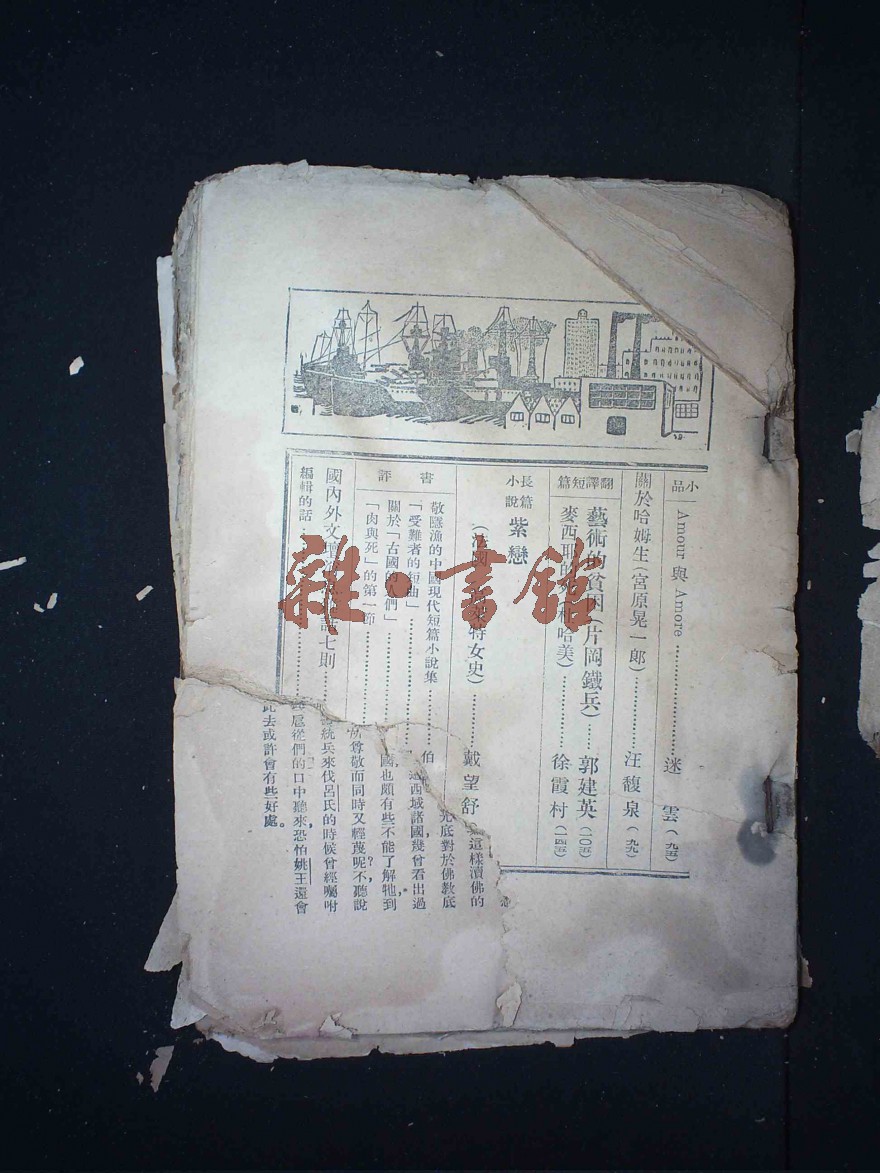 小品
Amour 與 Amore……迷雲(九五)
關於哈姆生(宮原晃一郎)……汪馥泉(九九)
翻譯短篇
藝術的貧困(片岡鐵兵)……郭建英(一〇五)
麥西耶的(哈美)……徐霞村(一四五)
長篇小說
紫戀
(法國特女史)……戴望舒
書評
敬隱漁的中國現代短篇小說集……伯
「受難者的短曲」
關於「古國的人們」
「肉與死」的第一節
國內外文壇話七則
編輯的話
這樣瀆佛的
底對於佛教底
西域諸國幾曾看出過
國,也頗有些不能了解牠,到
尊敬而同時又輕蔑呢?不聽說
統兵來伐呂氏的時候曾經囑咐
扈從們的口中聽來,恐怕姚王還會
此去或許會有些好處。
雜·書館